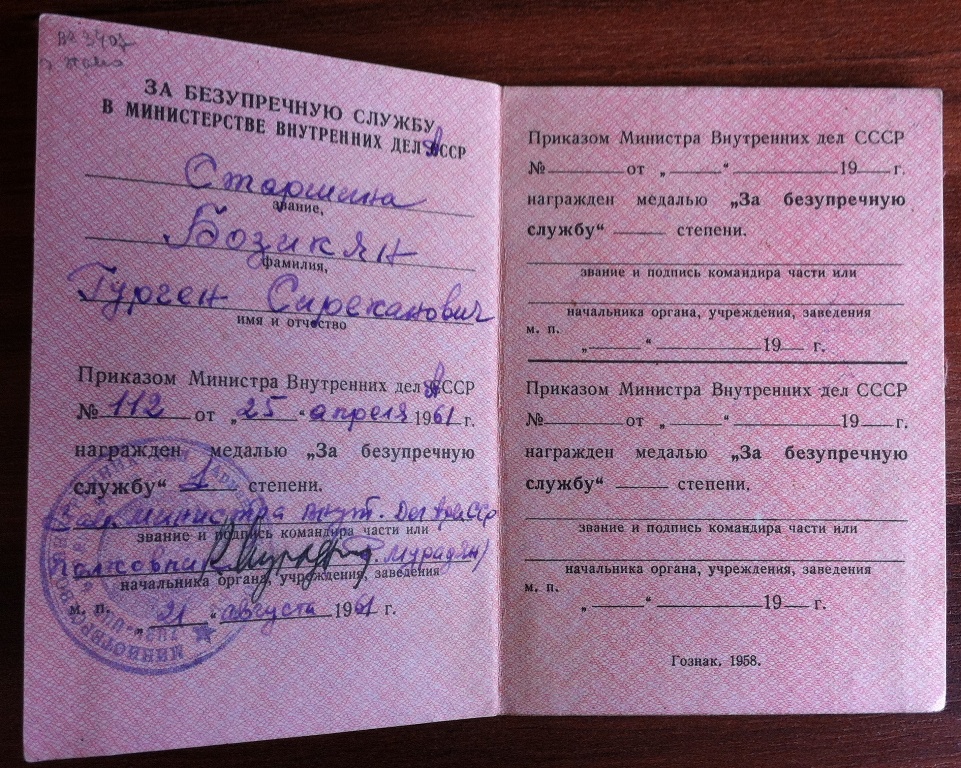 № 3407
ЗА БЕЗУПРЕЧНУЮ СЛУЖБУ
В МИНИСТЕРСТВЕ ВНУТРЕННИХ ДЕЛ АССР
Старшина
звание,
Бозикян
фамилия,
Гурген Сиреканович
имя и отчество
Приказом Министра Внутренних дел АССР
№ 112 от „25“ апреля 1961 г.
награжден медалью „За безупречную
службу“ 1 степени.
Зам министра внут. Дел АрмССР
звание и подпись командира части или
Полковник (Мурадян)
начальника органа, учреждения, заведения
м. п.
„21“ августа 1961 г.
Приказом Министра Внутренних дел СССР
№ от „ “ 19 г.
награжден медалью „За безупречную
службу“ степени.
звание и подпись командира части или
начальника органа, учреждения, заведения
м. п.
„ “ 19 г.
Приказом Министра Внутренних дел СССР
№ от „ “ 19 г.
награжден медалью „За безупречную
службу“ степени.
звание и подпись командира части или
начальника органа, учреждения, заведения
м. п.
„ “ 19 г.
Гознак. 1958.